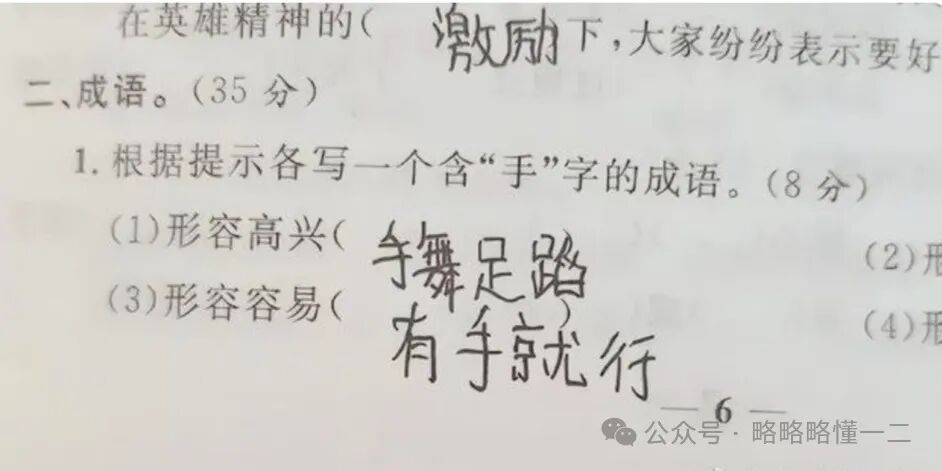 在英雄精神的( 激励下,大家纷纷表示要好
二、成语。(35 分)
1. 根据提示各写一个含“手”字的成语。(8 分)
(1)形容高兴( 手舞足蹈 ) (2)形
(3)形容容易( 有手就行 ) (4)形
— 6 —
公众号 · 略略略懂一二